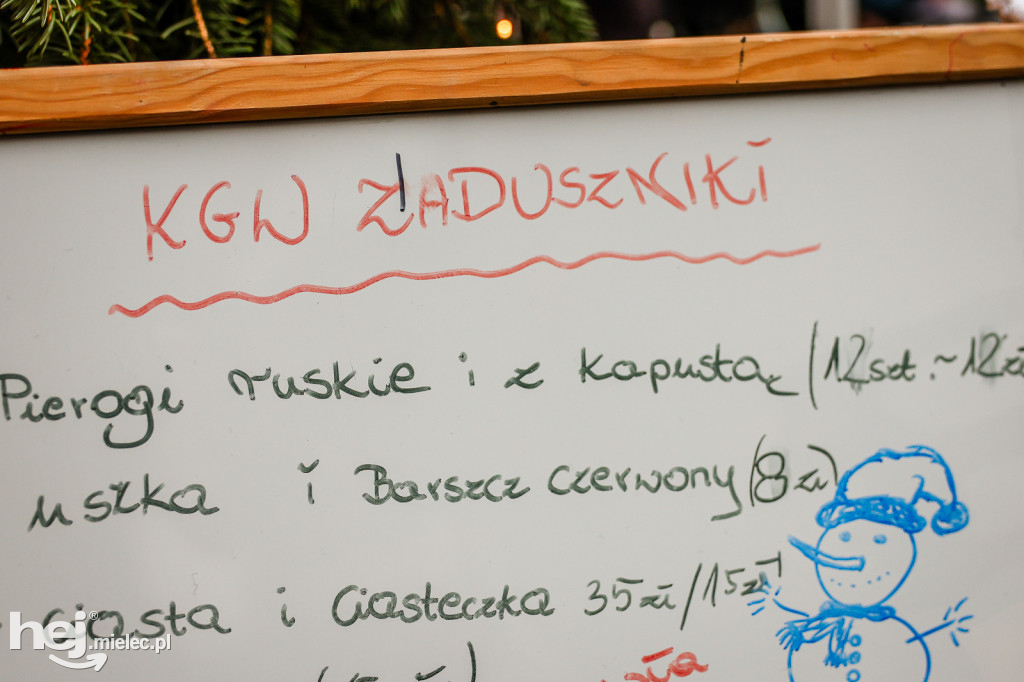 KGW ZADUSZNIKI
Pierogi ruskie i z kapustą (12szt. ~ 12zł
uszka i Barszcz czerwony (8zł)
ciasta i Ciasteczka 35zł/15zł
hej® .mielec.pl